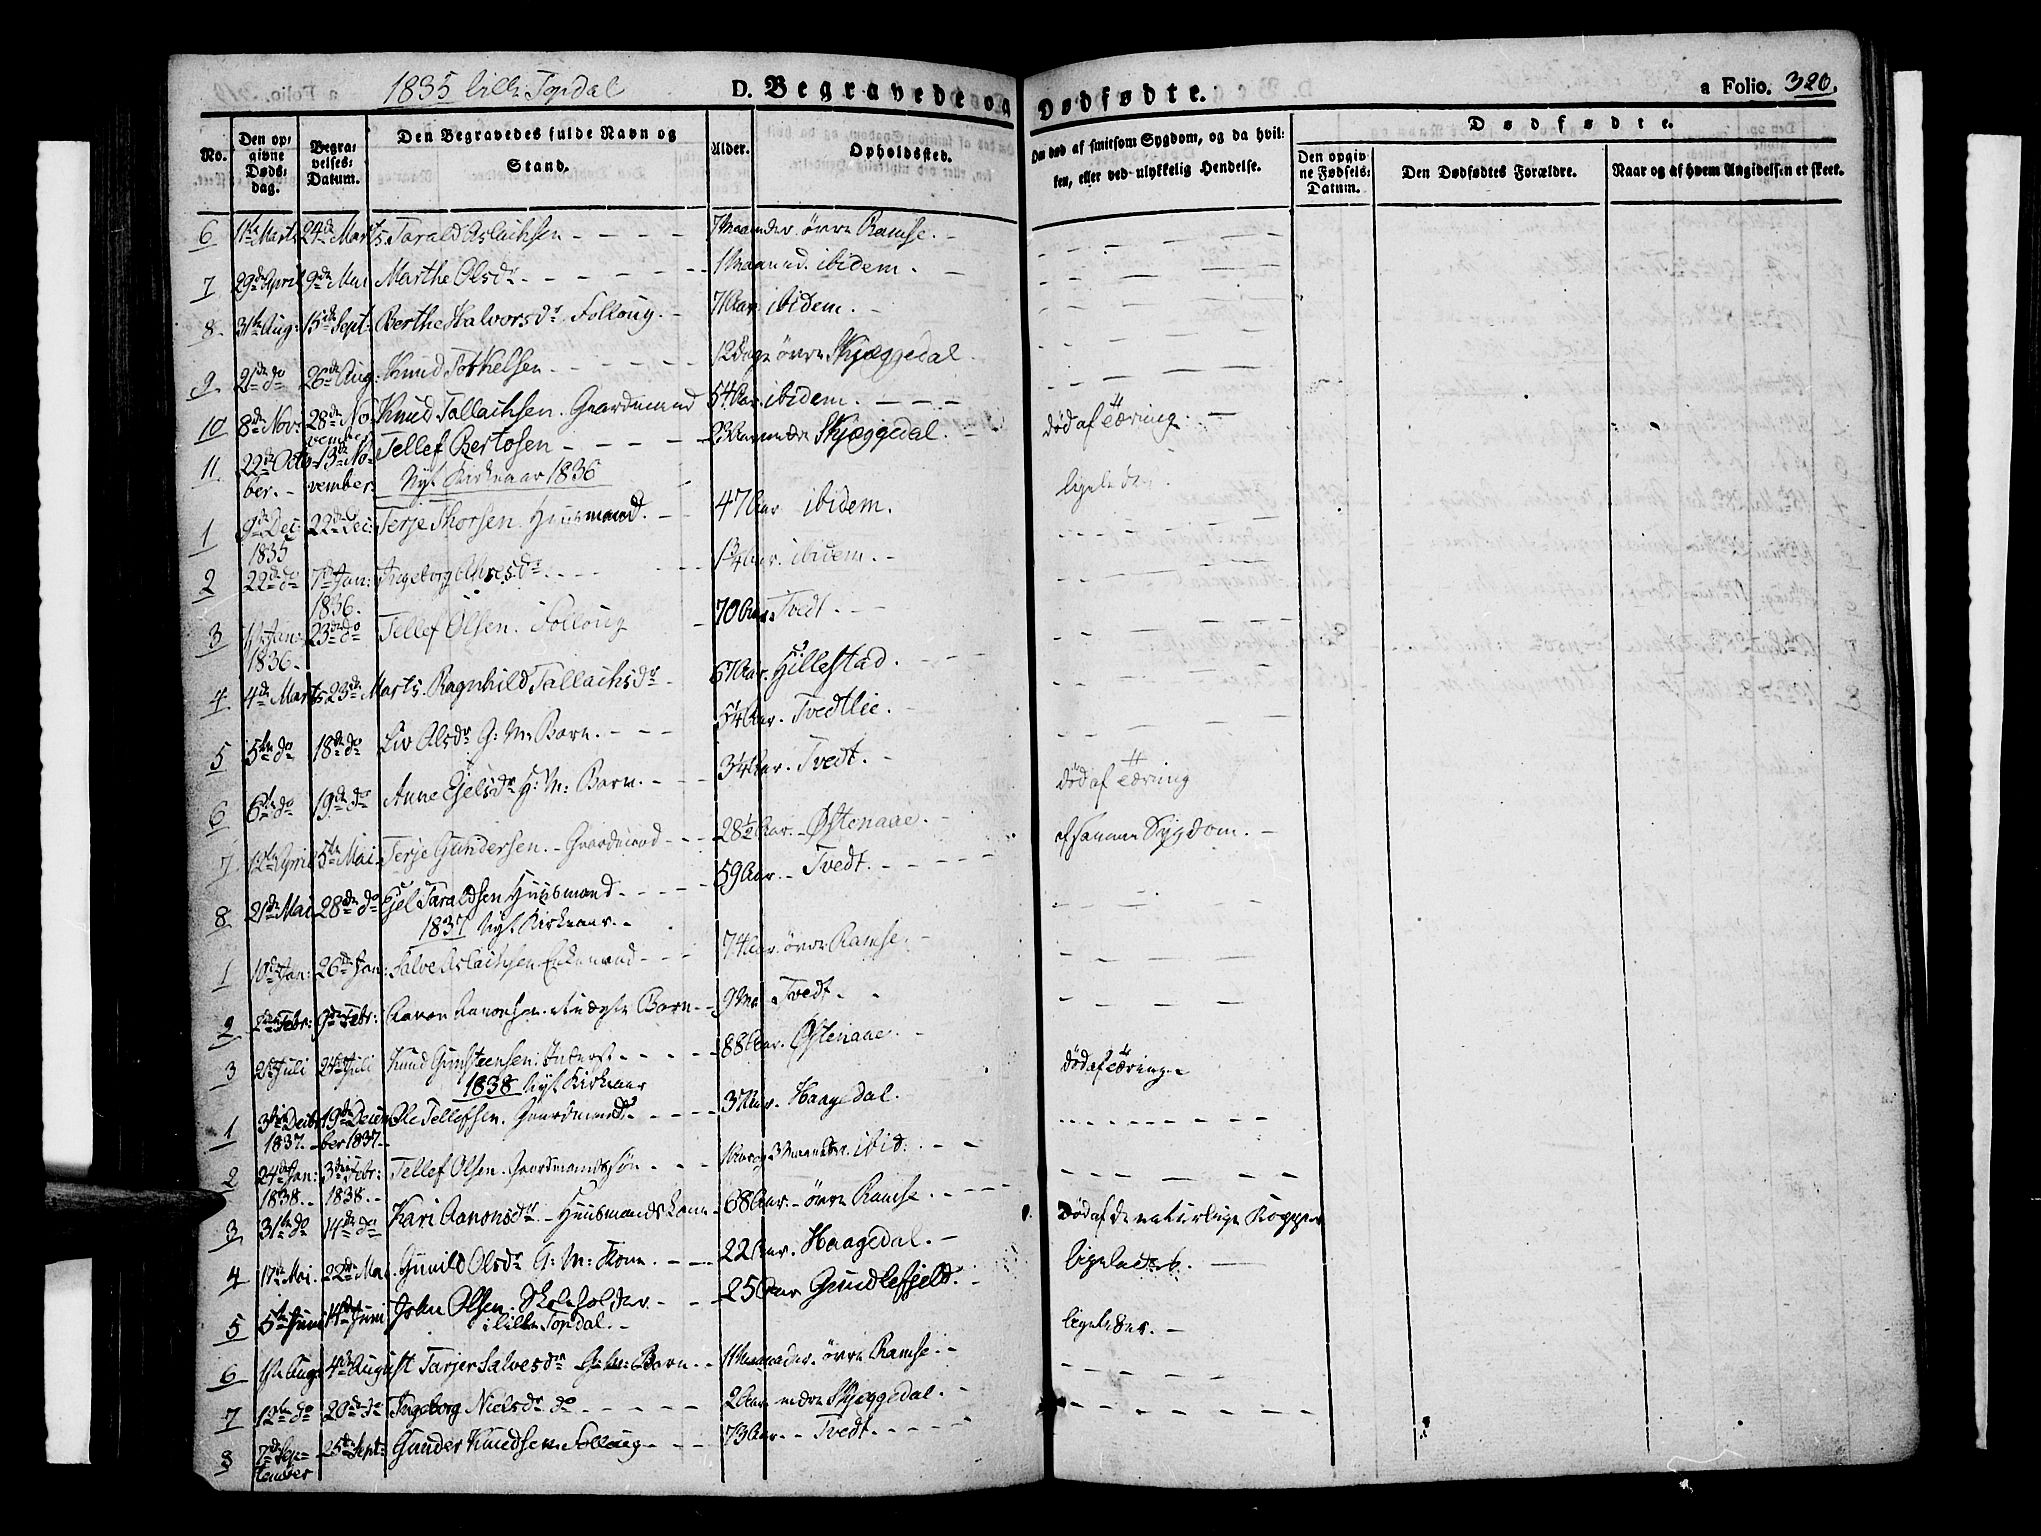 1835 lille Topdal D. Begravede og Dødfødte. a Folio. 320.
No. Den opgivne Dødsdag. Begravelses Datum. Den Begravedes fulde Navn og Stand. Alder. Opholdssted. Om død af smitsom Sygdom, og da hvilken, eller ved ulykkelig Hendelse. Dødfødte.
Den opgivne Fødsels Datum. Den Dødfødtes Forældre. Naar og af hvem Angivelsen er skeet.
6 11te Marts 24de Marts Tarald Aslachsen 7 Maaneder øvre Ramse.
7 29de April 9de Mai Marthe Olsdr 1 Maaned. ibidem.
8. 31te Aug: 15de Sept: Berthe Halvorsdr. Folloug. 71 Aar ibidem.
9. 21de do 26de Aug: Knud Torkelsen 12 Dage øvre Skjæggedal
10 8de Nov: 28de November Knud Tallachsen. Gaardmand 54 Aar. ibidem. død af Tæring.
11. 22de October. 13de November. Tellef Bertosen 23 Aar nedre Skjæggedal. ligeledes.
Nyt Kirkeaar 1836
1 9de Dec: 1835 22de Dec: Terje Thorsen. Huusmand. 47 Aar ibidem.
2 22de do 7de Jan: 1836. Ingeborg Ahresdr 1 3/4 Aar. ibidem.
3 11te Jan: 1836. 23de do Tellef Olsen. Folloug 70 Aar. Tvedt.
4. 4de Marts 23de Marts. Ragnhild Tallachsdr 67 Aar. Hillestad.
5 5te do 18de do Liv Olsdr G: M: Barn. 5 1/4 Aar. Tvedtlie.
6 6te do 19de do Anne Ejelsdr H: M: Barn. 3 1/4 Aar. Tvedt. død af Tæring
7 12te April 5te Mai Terje Gundersen. Gaardmand 28 1/2 Aar. Østenaae. af samme Sygdom.
8. 21de Mai 28de do Ejel Taraldsen Huusmand. 59 Aar. Tvedt.
1837 Nyt Kirkeaar.
1 10de Jan: 26de Jan: Salve Aslachsen Enkemand 74 Aar. øvre Ramse.
2 Febr: 9de Febr: Aanon Aanonsen. Barn. 9 Mr. Tvedt.
3 2de Juli 24de Juli Knud Gunsteensen: Inderst 88 Aar. Østenaae. død af Tæring.
1838 Nyt Kirkeaar
1 3die Decbr 1837. 19de December 1837. Ole Tellefsen. Gaardmand. 37 Aar. Haagedal.
2 24de Jan: 1838. 3die Febr: 1838. Tellef Olsen. Gaardmandssøn 1 Aar og 3 Maaneder. ibid.
3 31te do 14de do Kari Aanonsdr Huusmandskone 68 Aar. øvre Ramse. død af de naturlige Kopper
4 17de Mai. 22de Mai. Gunild Olsdr G: M: Kone. 22 Aar. Haagedal. ligeledes.
5 5te Juni 14de Juni John Olsen. Skoleholder i lille Topdal. 25 Aar Gundlefjeld. ligeledes.
6 1ste Aug: 4de August Tarjer Salvesdr G: M: Barn. 11 Maaneder. øvre Ramse.
7 12te do 20de do Ingeborg Nielsdr do 2 Aar nedre Skjeggedal.
8 7de September 25de Sept: Gunder Knudsen Follaug 73 Aar. Tvedt.